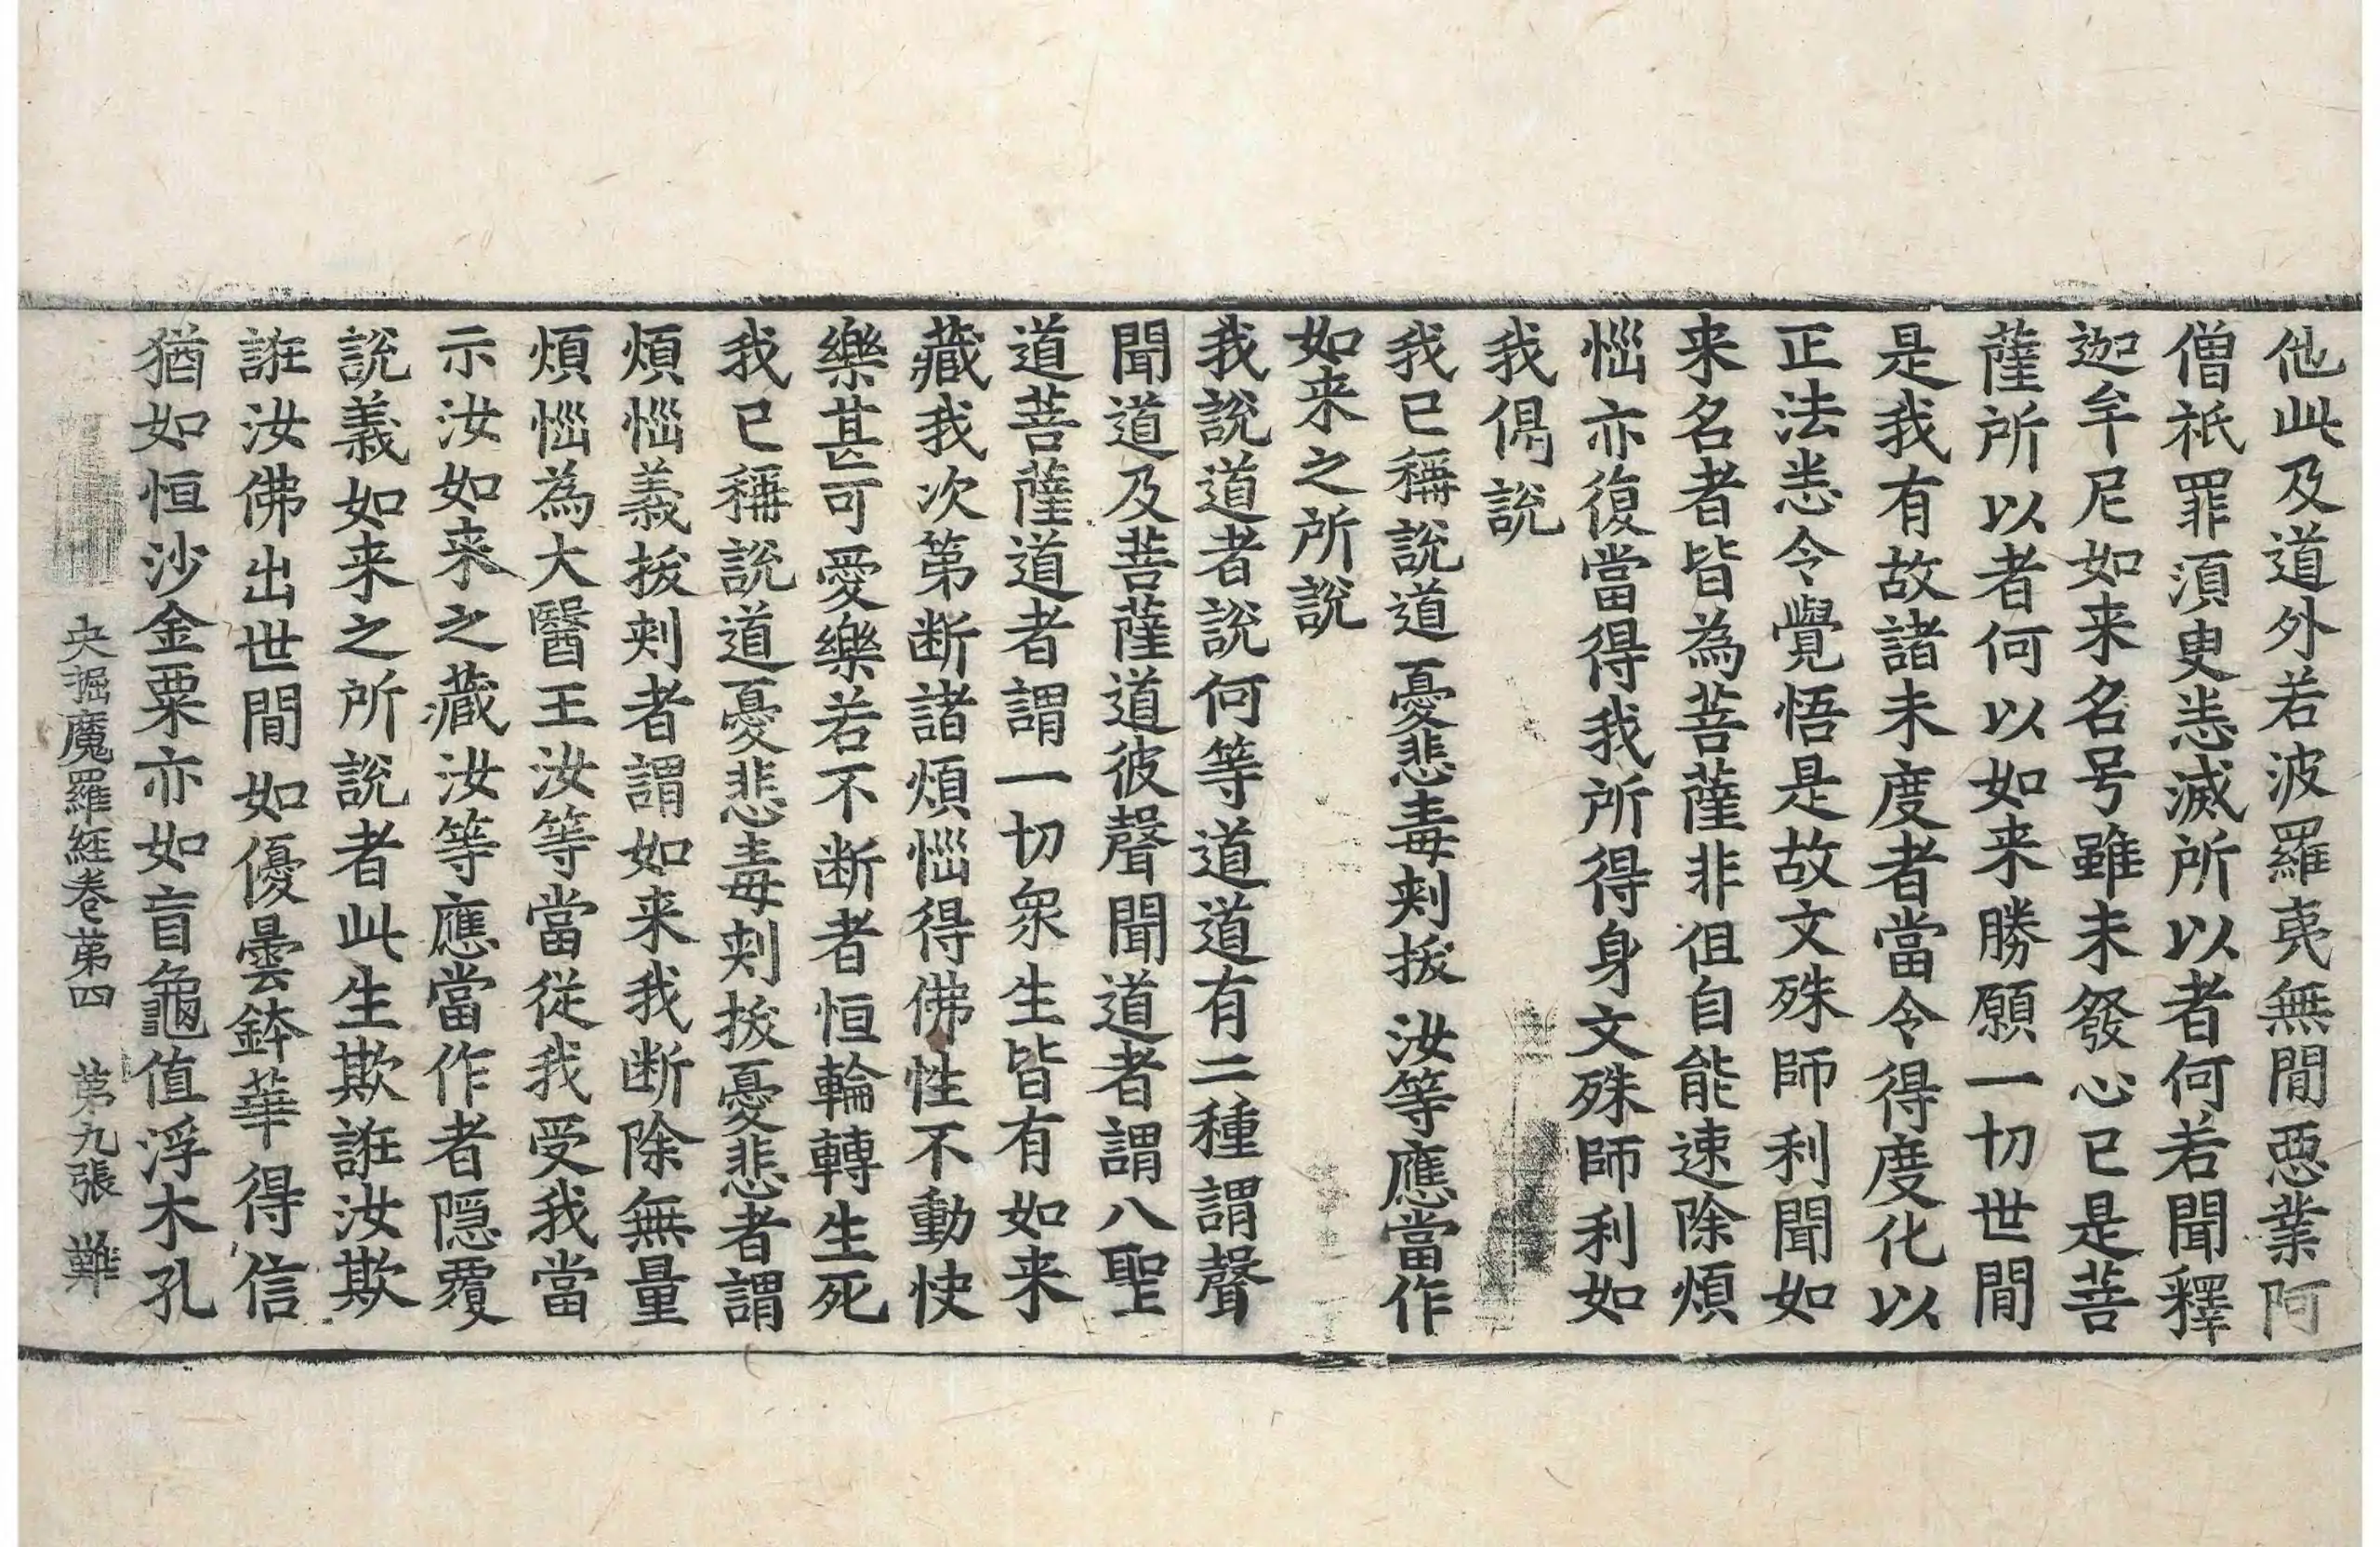 他此及道外若波羅夷無間惡業阿
僧祇罪湏臾悉滅所以者何若聞釋
迦牟尼如来名号雖未發心已是菩
薩所以者何以如来勝願一切世間
是我有故諸未度者當令得度化以
正法悉令覺悟是故文殊師利聞如
来名者皆為菩薩非但自能速除煩
惱亦復當得我所得身文殊師利如
我偈説
我已稱説道 憂悲毒刺拔 汝等應當作
如来之所説
我説道者説何等道道有二種謂聲
聞道及菩薩道彼聲聞道者謂八聖
道菩薩道者謂一切衆生皆有如来
藏我次第断諸煩惱得佛性不動快
樂甚可愛樂若不断者恒輪轉生死
我已稱説道憂悲毒刺拔憂悲者謂
煩惱義拔刺者謂如来我断除無量
煩惱為大醫王汝等當從我受我當
示汝如来之藏汝等應當作者隠覆
説義如来之所説者此生欺誑汝欺
誑汝佛出世間如優曇鉢華得信
猶如恒沙金粟亦如盲龜值浮木孔
央掘魔羅経卷苐四 苐九張 難